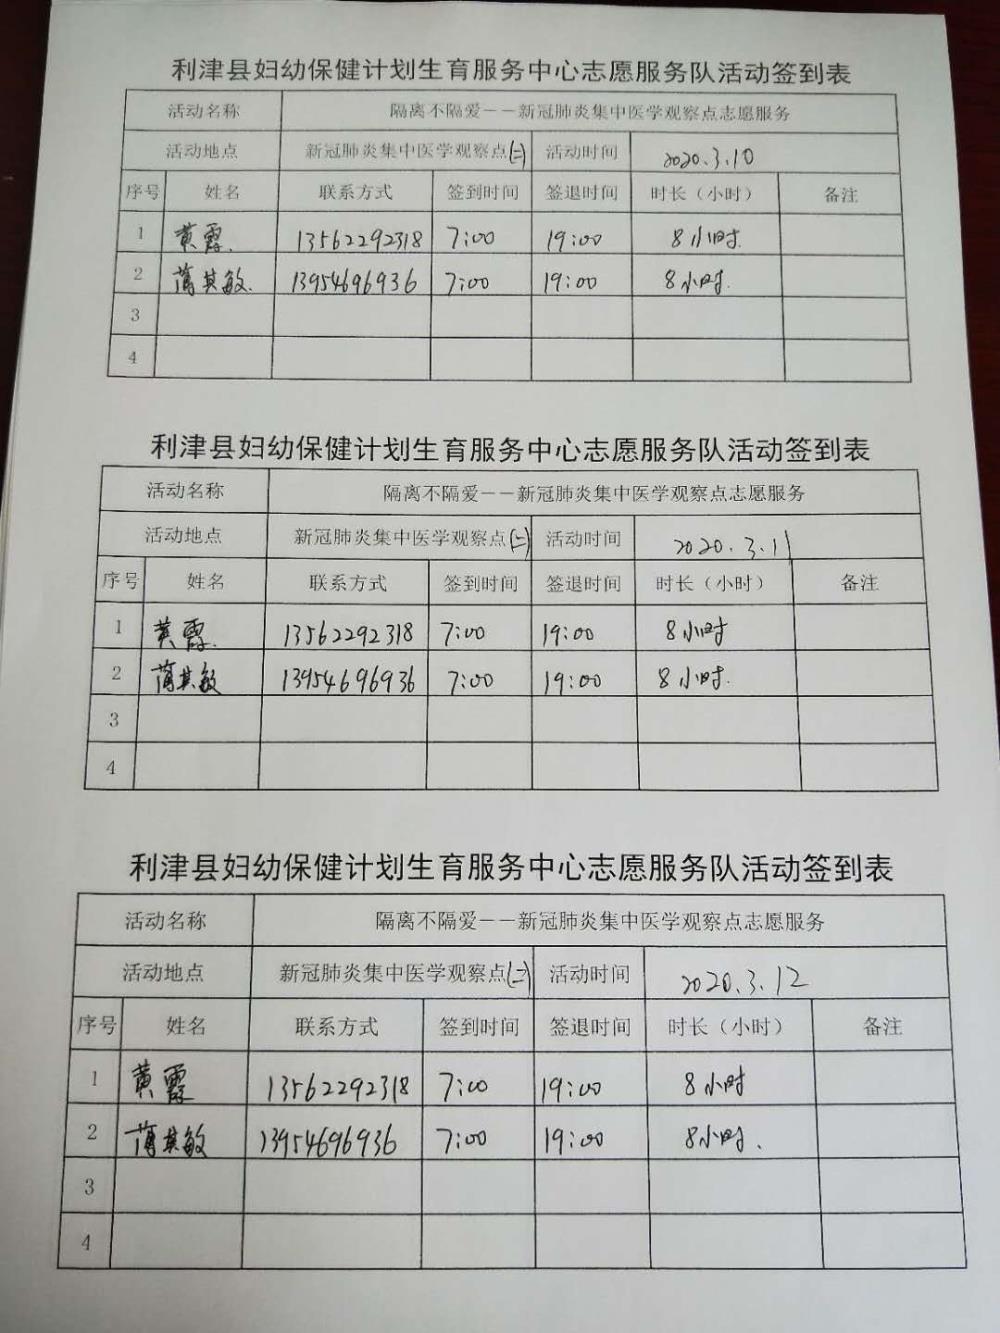 利津县妇幼保健计划生育服务中心志愿服务队活动签到表
活动名称 隔离不隔爱——新冠肺炎集中医学观察点志愿服务
活动地点 新冠肺炎集中医学观察点(二) 活动时间 2020.3.10
序号 姓名 联系方式 签到时间 签退时间 时长（小时） 备注
1 黄霞. 13562292318 7:00 19:00 8小时.
2 薄其敏. 13954696936 7:00 19:00 8小时.
3
4
利津县妇幼保健计划生育服务中心志愿服务队活动签到表
活动名称 隔离不隔爱——新冠肺炎集中医学观察点志愿服务
活动地点 新冠肺炎集中医学观察点(二) 活动时间 2020.3.11
序号 姓名 联系方式 签到时间 签退时间 时长（小时） 备注
1 黄霞. 13562292318 7:00 19:00 8小时
2 薄其敏 13954696936 7:00 19:00 8小时.
3
4
利津县妇幼保健计划生育服务中心志愿服务队活动签到表
活动名称 隔离不隔爱——新冠肺炎集中医学观察点志愿服务
活动地点 新冠肺炎集中医学观察点(二) 活动时间 2020.3.12
序号 姓名 联系方式 签到时间 签退时间 时长（小时） 备注
1 黄霞 13562292318 7:00 19:00 8小时
2 薄其敏 13954696936 7:00 19:00 8小时.
3
4